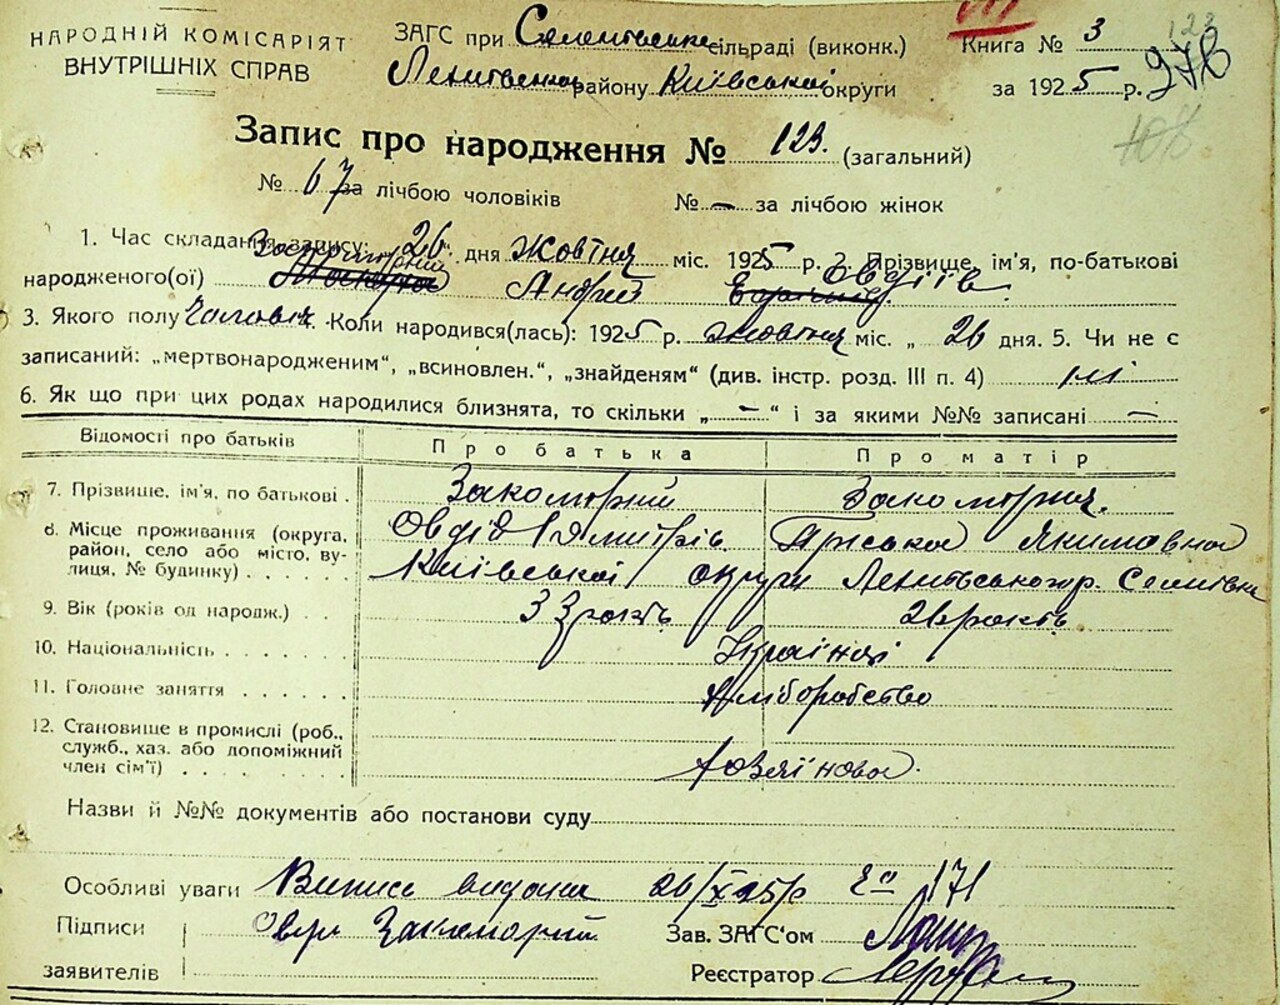 НАРОДНІЙ КОМІСАРІЯТ
ВНУТРІШНІХ СПРАВ
ЗАГС при сільраді (виконк.)
району Київської округи
III
Книга № 3
за 1925 р.
123
278
108
Запис про народження № 123. (загальний)
№ 67 за лічбою чоловіків № — за лічбою жінок
1. Час складання запису: 26 дня Жовтня міс. 1925 р. 2. Прізвище, ім'я, по-батькові
народженого(ої) Андрій Овдіїв
3. Якого полу Чоловіч. Коли народився(лась): 1925 р. Жовтня міс. „ 26 дня. 5. Чи не є
записаний: „мертвонародженим“, „всиновлен.“, „знайденям“ (див. інстр. розд. III п. 4) ні
6. Як що при цих родах народилися близнята, то скільки „ — “ і за якими №№ записані —
Відомості про батьків Про батька Про матір
7. Прізвище, ім'я, по батькові . Закоморний Закоморна.
Овдій Дмитрів. Якимовна
8. Місце проживання (округа, район, село або місто, вулиця, № будинку) Київської округи
9. Вік (років од народж.) 33 років
10. Національність Українці
11. Головне заняття Хліборобство
12. Становище в промислі (роб., служб., хаз. або допоміжний член сім'ї) Хазяїнова
Назви й №№ документів або постанови суду
Особливі уваги Випись видана 26/X 25 р 171
Підписи
заявителів
Закоморний
Зав. ЗАГС‘ом
Реєстратор